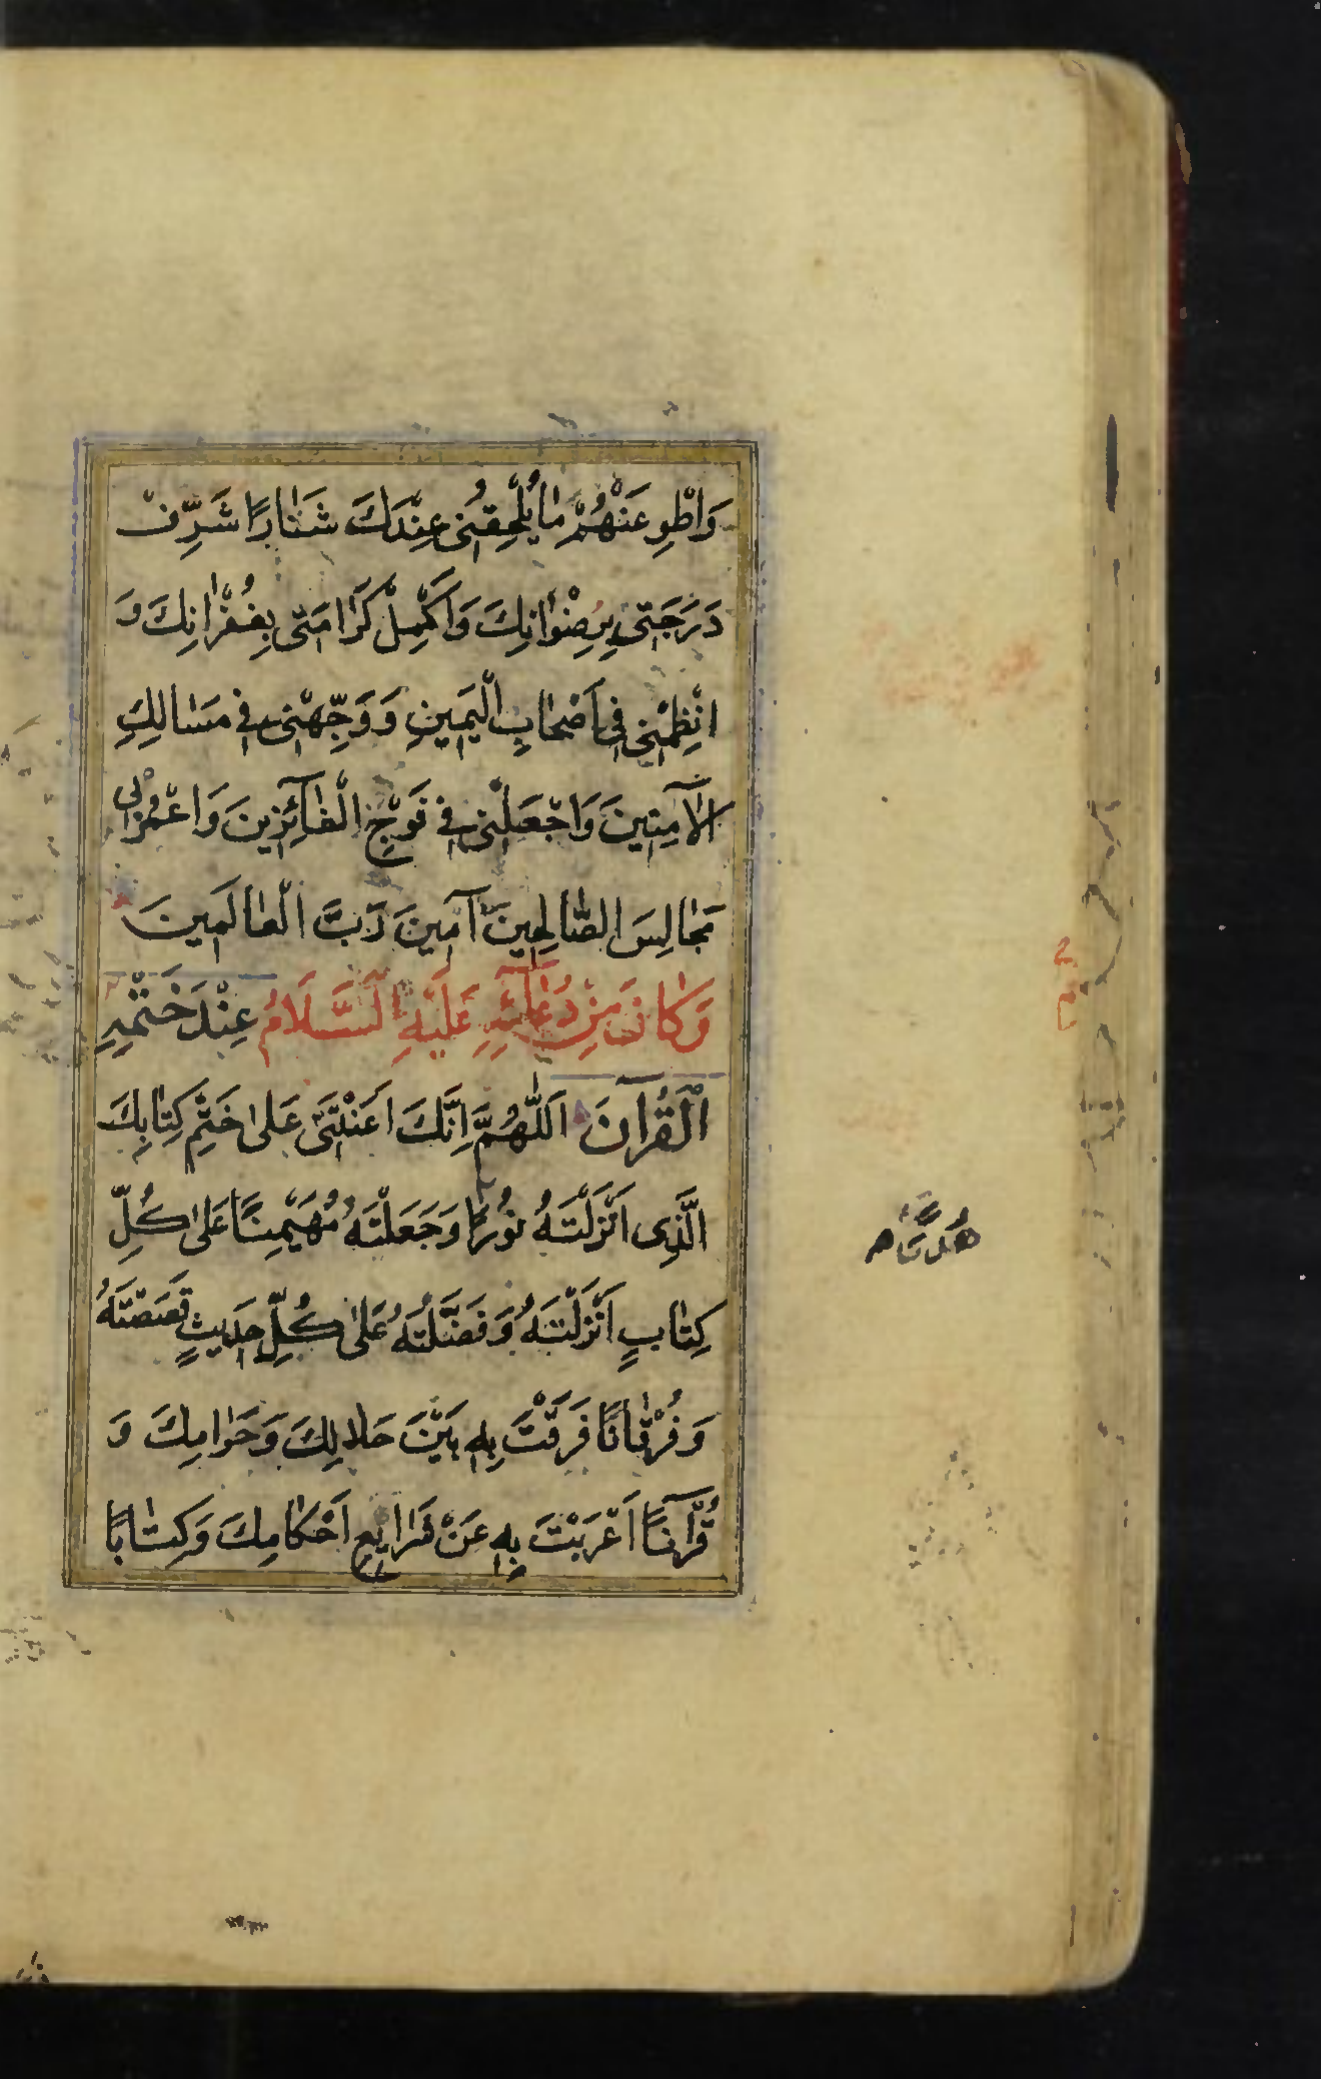 وَاطْوِ عَنْهُمْ مٰا يُلْحِقُنى عِنْدَكَ شَنٰارًا شَرِّفْ
دَرَجَتى بِرِضْوٰانِكَ وَاَكْمِلْ كَرٰامَتى بِغُفْرٰانِكَ وَ
انْظِمْنى فى اَصْحٰابِ الْيَمينِ وَوَجِّهْنى فى مَسٰالِكِ
الْآمِنينَ وَاجْعَلْنى فى فَوْجِ الْفٰآئِزينَ وَاعْمُرْ لى
مَجٰالِسَ الصّٰالِحينَ آمينَ رَبَّ الْعٰالَمينَ
وَكٰانَ مِنْ دُعٰآئِهِ عَلَيْهِ السَّلَامُ عِنْدَ خَتْمِهِ
الْقُرْآنَ اَللّٰهُمَّ اِنَّكَ اَعَنْتَنى عَلىٰ خَتْمِ كِتٰابِكَ
الَّذى اَنْزَلْتَهُ نُورًا وَجَعَلْتَهُ مُهَيْمِنًا عَلىٰ كُلِّ
كِتٰابٍ اَنْزَلْتَهُ وَفَضَّلْتَهُ عَلىٰ كُلِّ حَديثٍ قَصَصْتَهُ
وَفُرْقٰانًا فَرَقْتَ بِهِ بَيْنَ حَلالِكَ وَحَرٰامِكَ وَ
قُرْآنًا اَعْرَبْتَ بِهِ عَنْ شَرٰايِعِ اَحْكٰامِكَ وَكِتٰابًا